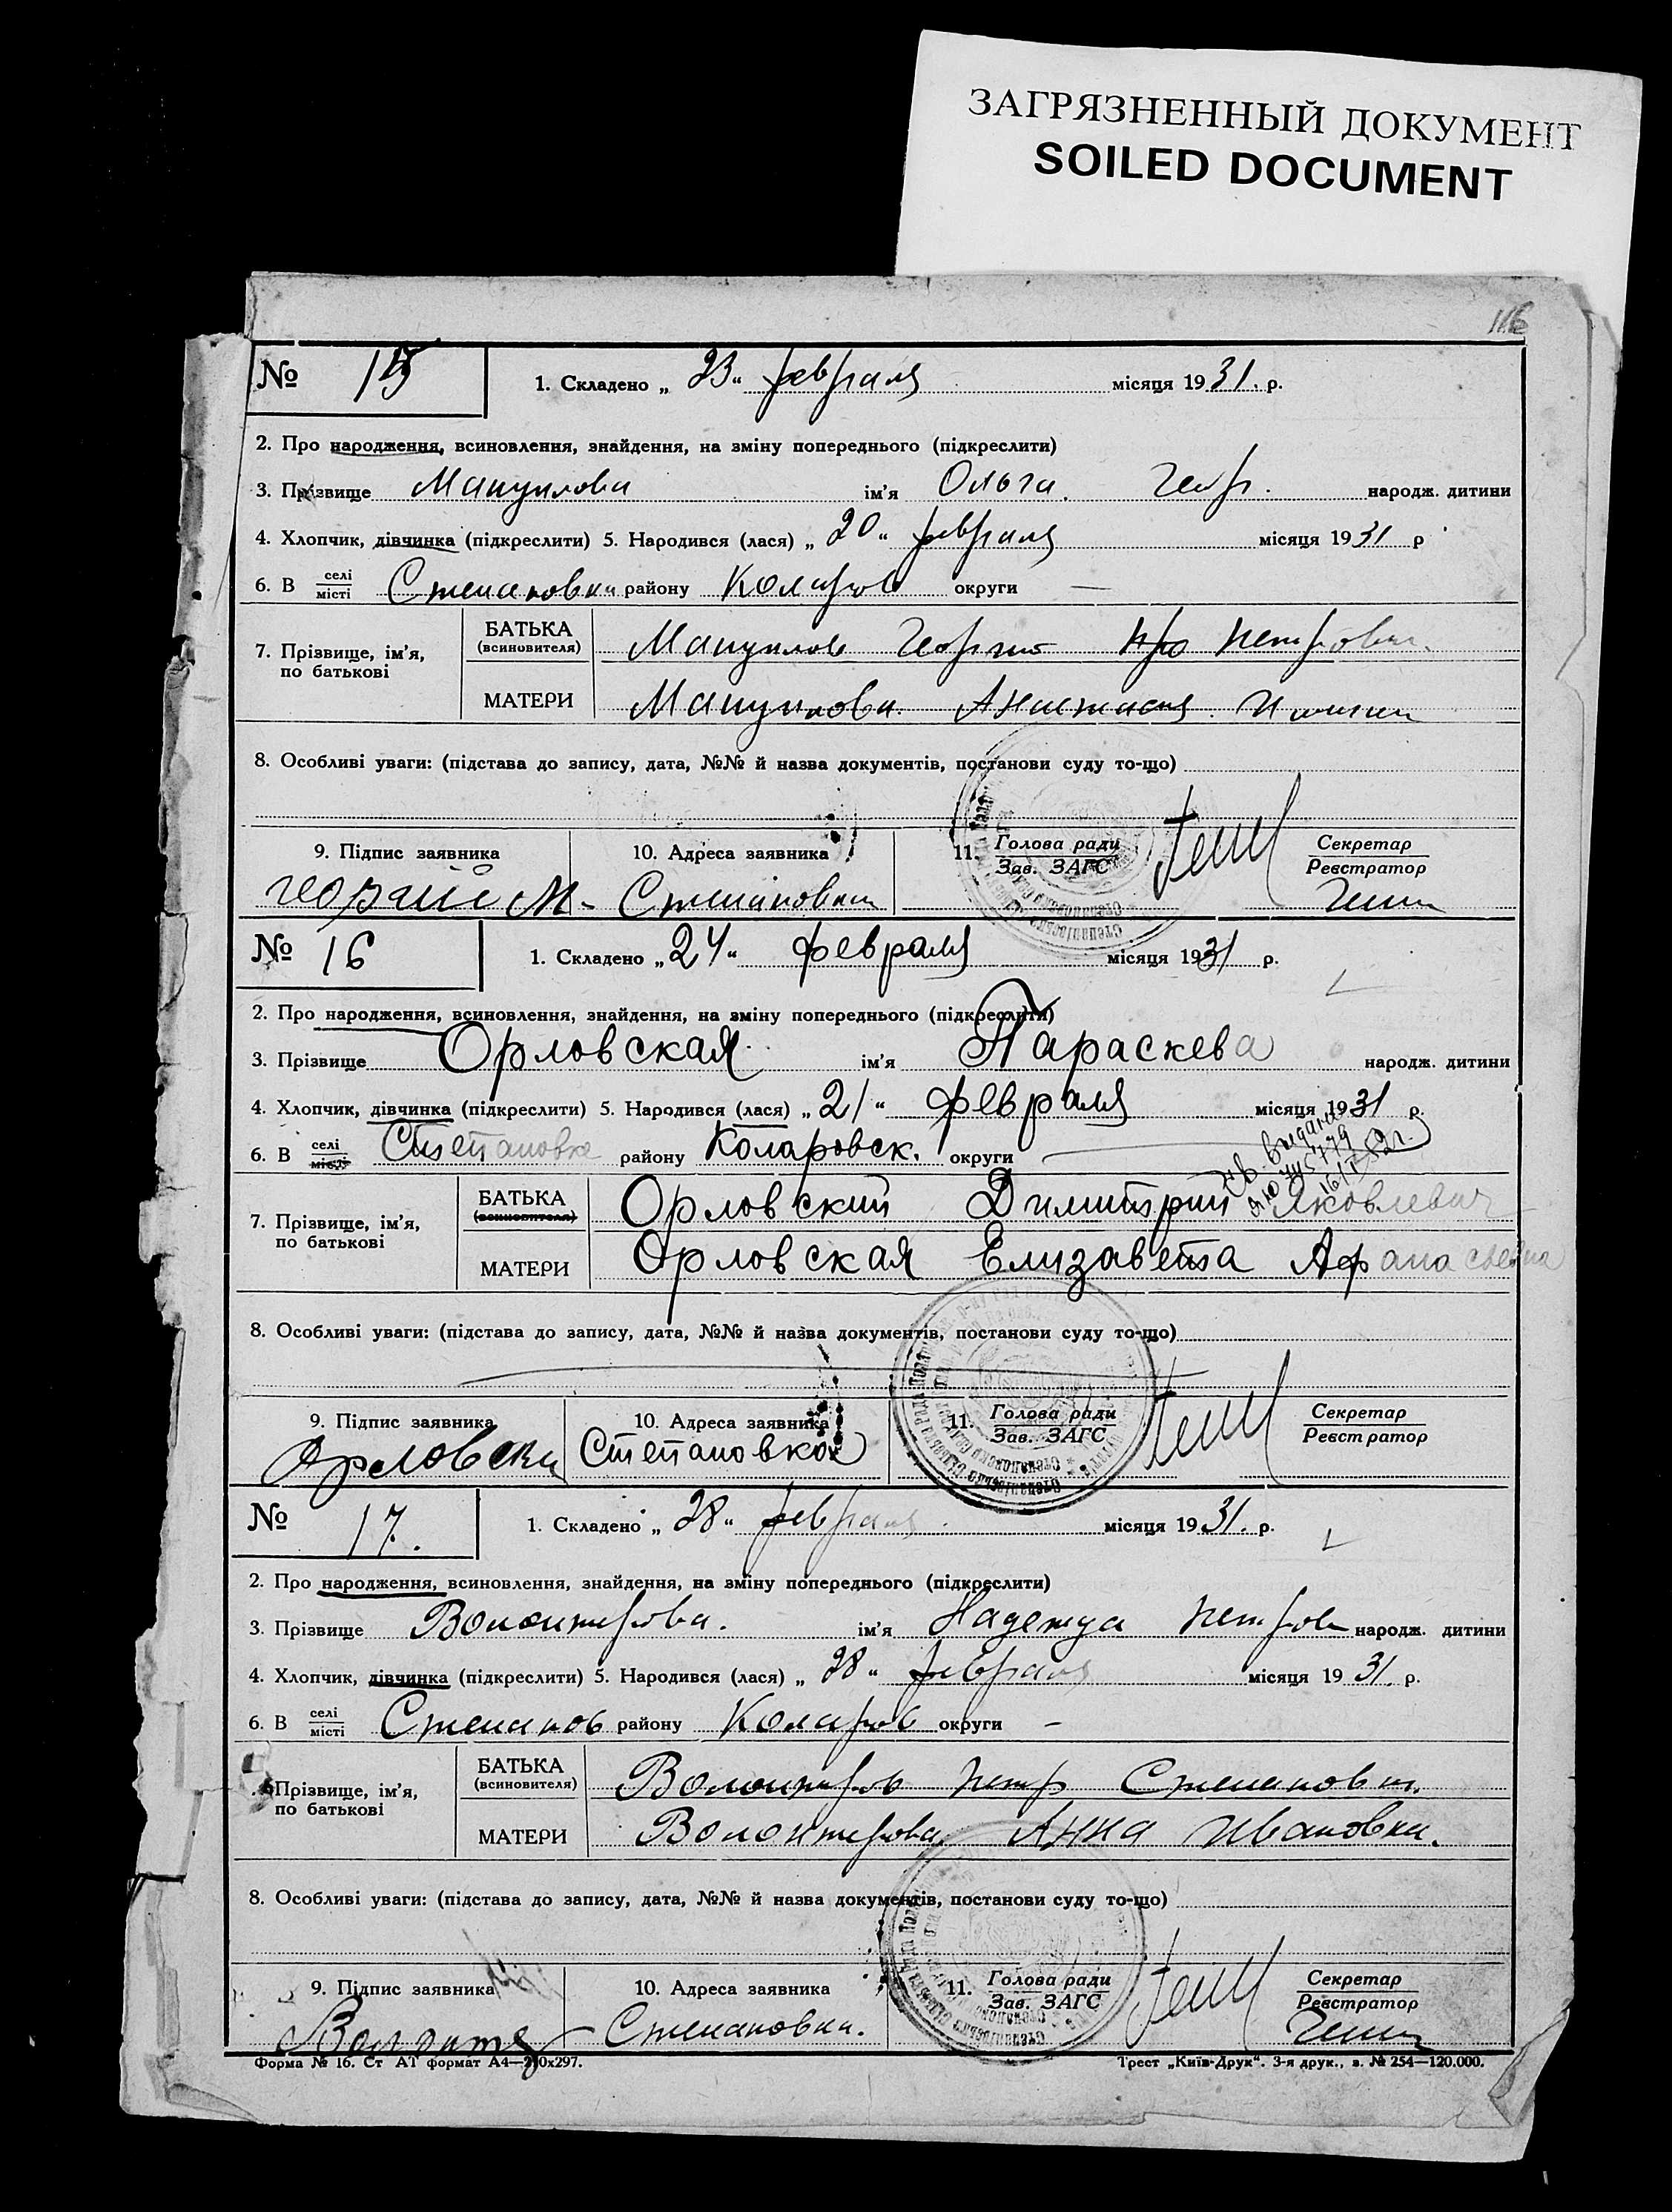 ЗАГРЯЗНЕННЫЙ ДОКУМЕНТ
SOILED DOCUMENT
116
№ 15 1. Складено „ 23 “ февраля місяця 1931. р.
2. Про народження, всиновлення, знайдення, на зміну попереднього (підкреслити)
3. Прізвище Мануилова ім'я Ольга. Геор. народж. дитини
4. Хлопчик, дівчинка (підкреслити) 5. Народився (лася) „ 20 “ февраля місяця 1931 р
6. В селі/місті Степановки району Коларов округи —
7. Прізвище, ім'я, по батькові
БАТЬКА (всиновителя) Мануилов Георгий Петрович.
МАТЕРИ Мануилова Анастасия
8. Особливі уваги: (підстава до запису, дата, №№ й назва документів, постанови суду то-що)
9. Підпис заявника 10. Адреса заявника 11. Голова ради/Зав. ЗАГС Секретар/Реєстратор
Георгий М- Степановки
№ 16 1. Складено „ 24 “ февраля місяця 1931 р.
2. Про народження, всиновлення, знайдення, на зміну попереднього (підкреслити)
3. Прізвище Орловская ім'я Параскева народж. дитини
4. Хлопчик, дівчинка (підкреслити) 5. Народився (лася) „ 21 “ февраля місяця 1931 р.
6. В селі/місті Степановке району Коларовск. округи
св. выдано
ЯЮ 745779
16/I 52 г.
7. Прізвище, ім'я, по батькові
БАТЬКА (всиновителя) Орловский Димитрий Яковлевич
МАТЕРИ Орловская Елизавета Афанасьевна
8. Особливі уваги: (підстава до запису, дата, №№ й назва документів, постанови суду то-що)
9. Підпис заявника 10. Адреса заявника 11. Голова ради/Зав. ЗАГС Секретар/Реєстратор
Орловски Степановка
№ 17. 1. Складено „ 28 “ февраля місяця 1931. р.
2. Про народження, всиновлення, знайдення, на зміну попереднього (підкреслити)
3. Прізвище Волонтирова. ім'я Надежда Петров народж. дитини
4. Хлопчик, дівчинка (підкреслити) 5. Народився (лася) „ 28 “ февраля місяця 1931. р.
6. В селі/місті Степанов району Коларов округи –
7. Прізвище, ім'я, по батькові
БАТЬКА (всиновителя) Волонтиров Петр Степанович.
МАТЕРИ Волонтерова Анна Ивановна.
8. Особливі уваги: (підстава до запису, дата, №№ й назва документів, постанови суду то-що)
9. Підпис заявника 10. Адреса заявника 11. Голова ради/Зав. ЗАГС Секретар/Реєстратор
Волонте Степановки.
Форма № 16. Ст АТ формат А4—210х297. Трест „Київ-Друк“. 3-я друк., з. № 254—120.000.